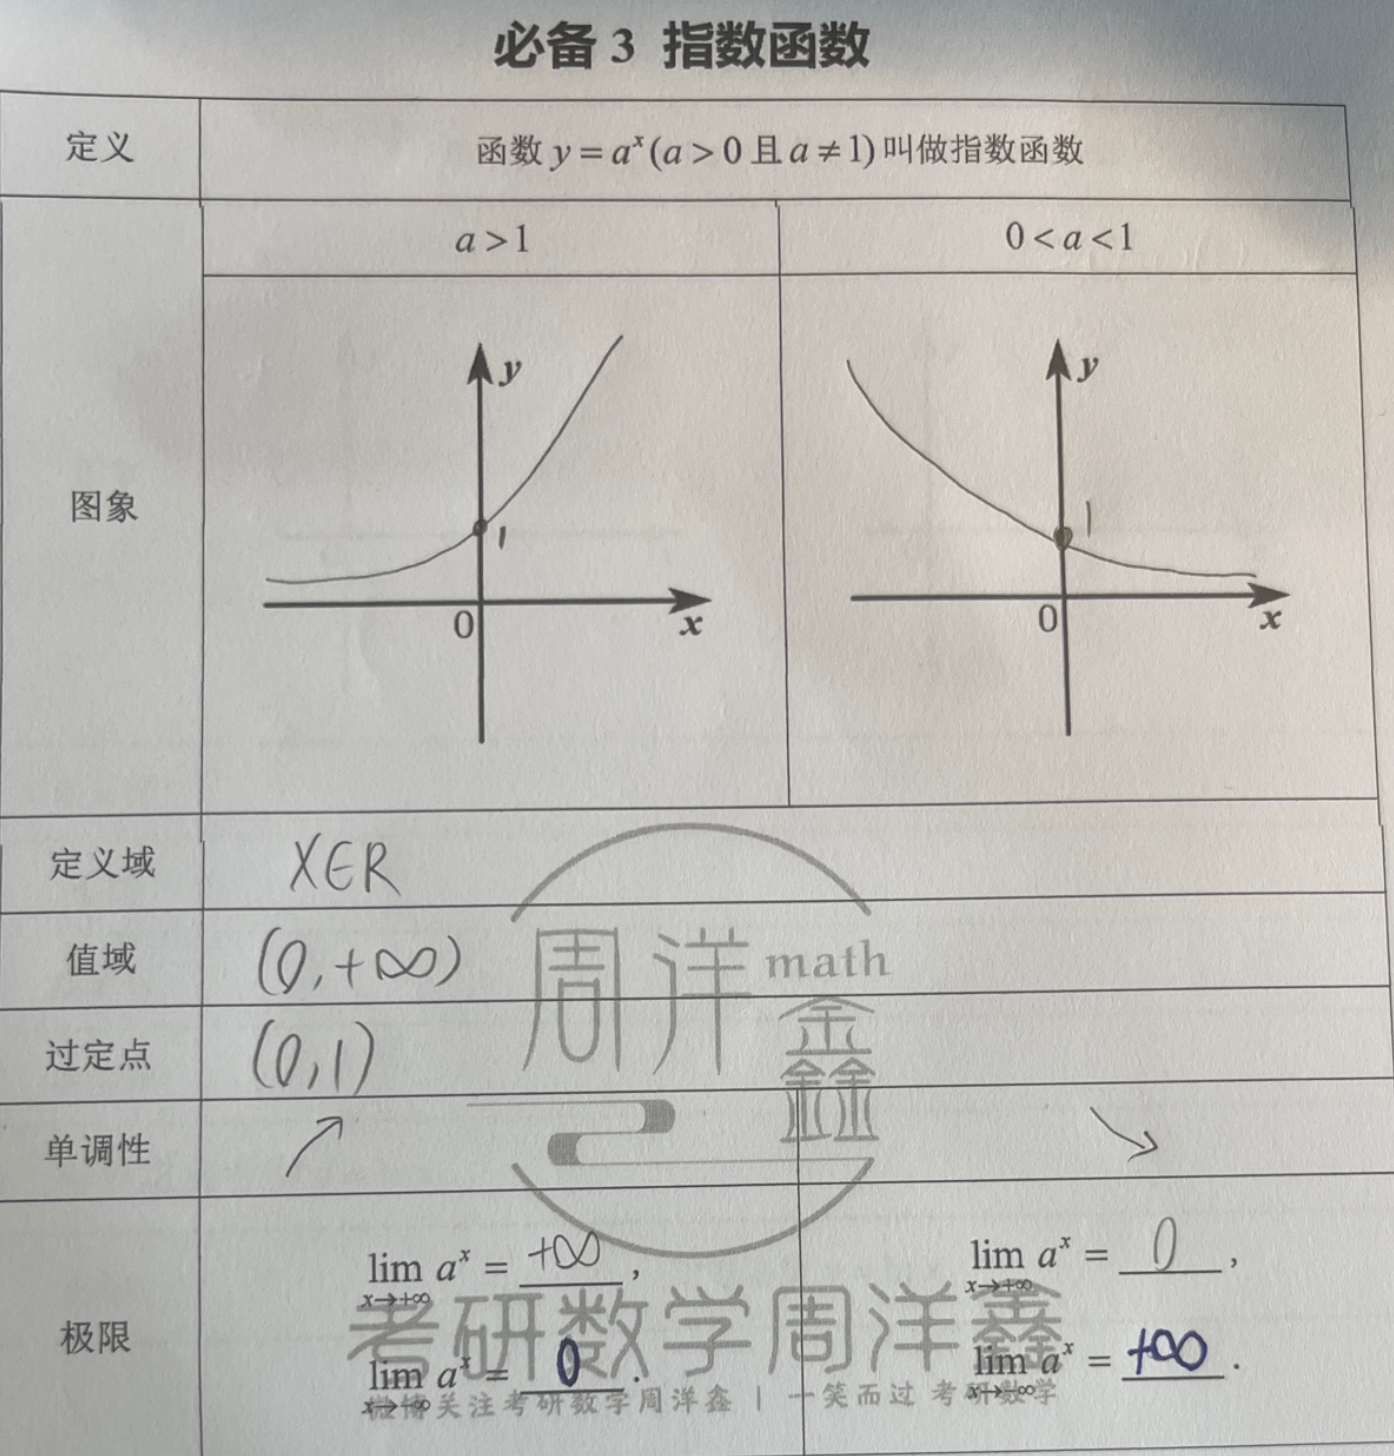 必备 3 指数函数
定义 函数 y = aˣ (a > 0 且 a ≠ 1) 叫做指数函数
a > 1 0 < a < 1
图象
y y
1 1
0 x 0 x
定义域 X∈R
值域 (0,+∞)
过定点 (0,1)
单调性 ↗ ↘
极限
lim aˣ = +∞, lim aˣ = 0,
x→+∞ x→+∞
lim aˣ = 0. lim aˣ = +∞.
x→-∞ x→-∞
周洋鑫 math
考研数学周洋鑫
微博关注考研数学周洋鑫 | 一笑而过 考研数学